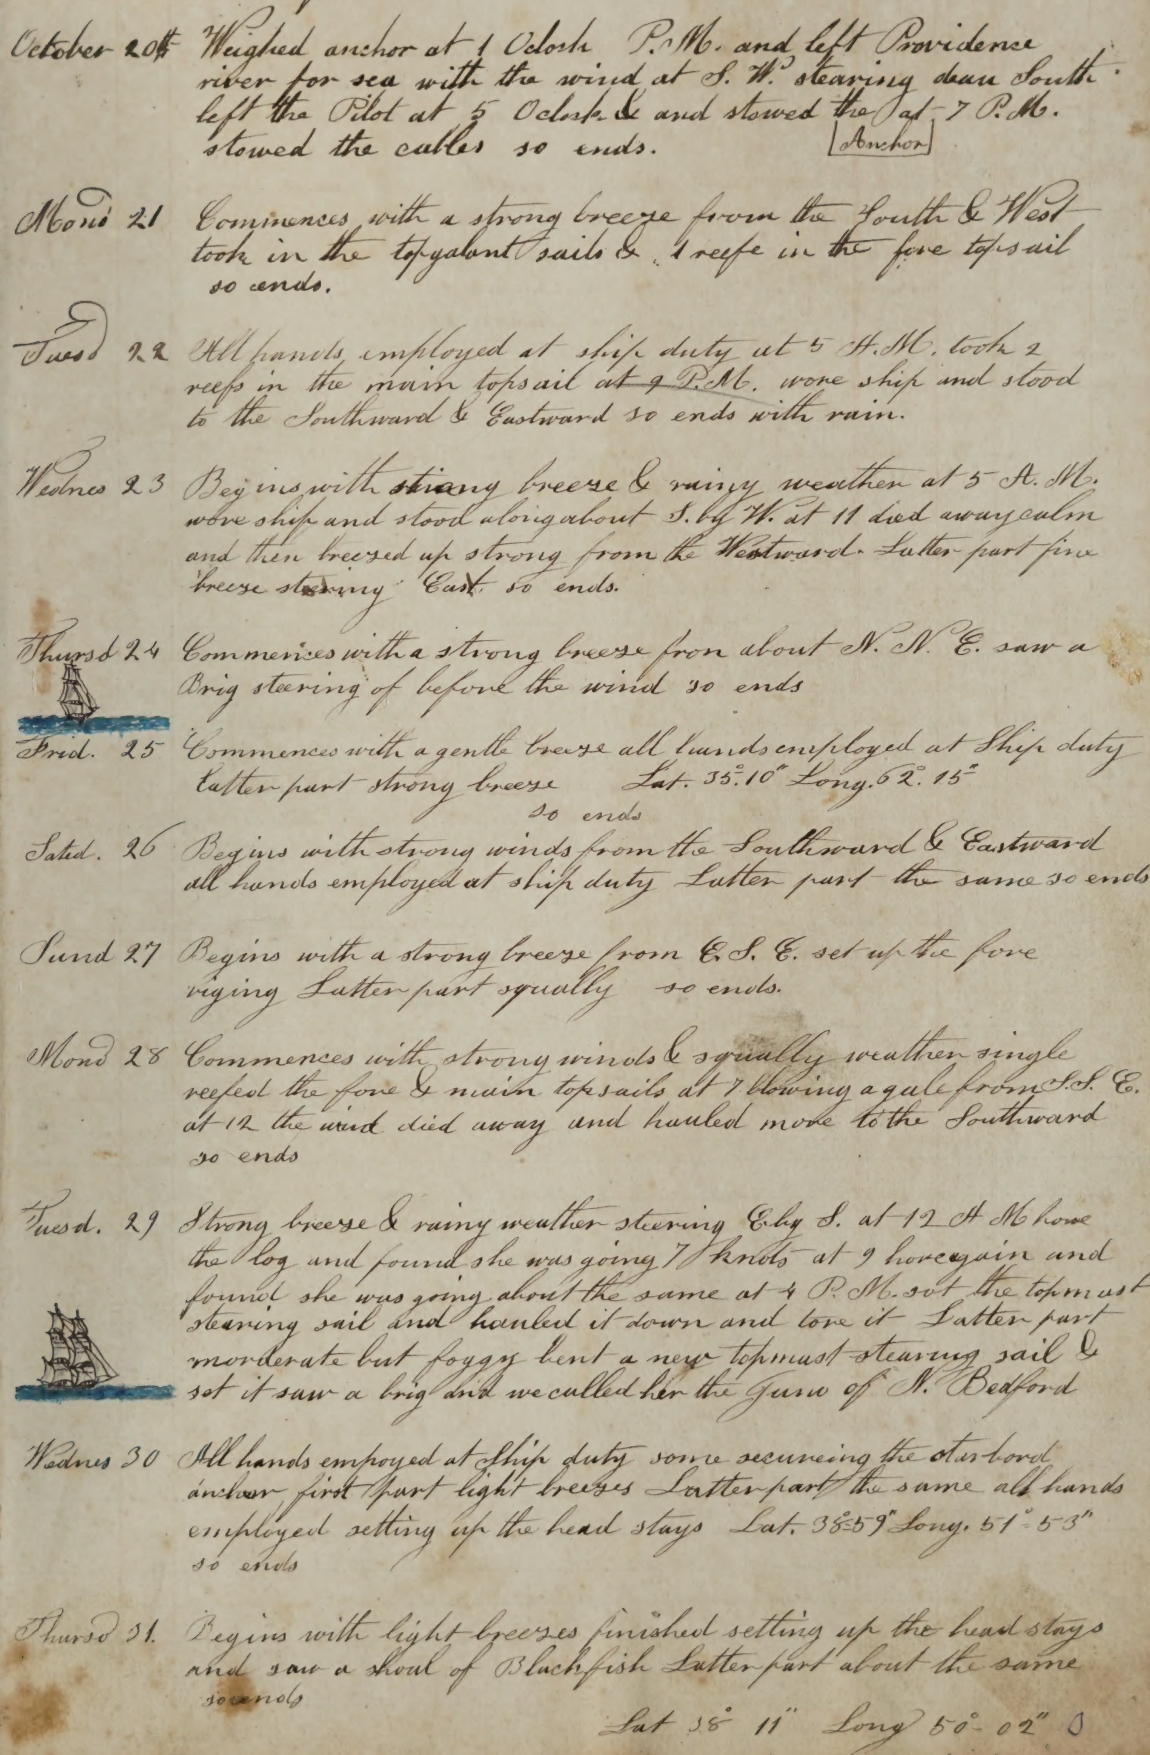 October 20th Weighed anchor at 1 Oclock P.M. and left Providence
river for sea with the wind at S. W. stearing dean South
left the Pilot at 5 Oclock & and stowed the at 7 P.M.
[Anchor]
stowed the cables so ends.
Mond 21 Commences with a strong breeze from the South & West
took in the topgalant sails & 1 reefe in the fore topsail
so ends.
Tuesd 22 All hands, employed at ship duty at 5 A.M. took 2
reefs in the main topsail at 9 P.M. wore ship and stood
to the Southward & Eastward so ends with rain.
Wednes 23 Begins with strong breeze & rainy weather at 5 A.M.
wore ship and stood along about S. by W. at 11 died away calm
and then breezed up strong from the Westward. Latter part fine
breeze steering East. so ends.
Thursd 24 Commences with a strong breeze from about N. N. E. saw a
Brig steering of before the wind so ends
Frid. 25 Commences with a gentle breeze all hands employed at Ship duty
Latter part strong breeze Lat. 35° 10" Long. 62° 15"
so ends
Satd. 26 Begins with strong winds from the Southward & Eastward
all hands employed at ship duty Latter part the same so ends
Sund 27 Begins with a strong breeze from E. S. E. set up the fore
riging Latter part squally so ends.
Mond 28 Commences with strong winds & squally weather single
reefed the fore & main topsails at 7 blowing a gale from S.S. E.
at 12 the wind died away and hauled more to the Southward
so ends
Tuesd. 29 Strong breeze & rainy weather steering E by S. at 12 A M hove
the log and found she was going 7 knots at 9 hove again and
found she was going about the same at 4 P. M. sot the topmast
stearing sail and hauled it down and tore it Latter part
morderate but foggy bent a new topmast stearing sail &
set it saw a brig and we called her the of N. Bedford
Wednes 30 All hands empoyed at Ship duty some secureing the starbord
anchor first part light breezes Latter part the same all hands
employed setting up the head stays Lat. 38°-59" Long. 51°-53"
so ends
Thursd 31. Begins with light breezes finished setting up the head stays
and saw a shoal of Blackfish Latter part about the same
so ends
Lat 38° 11" Long 50°-02"